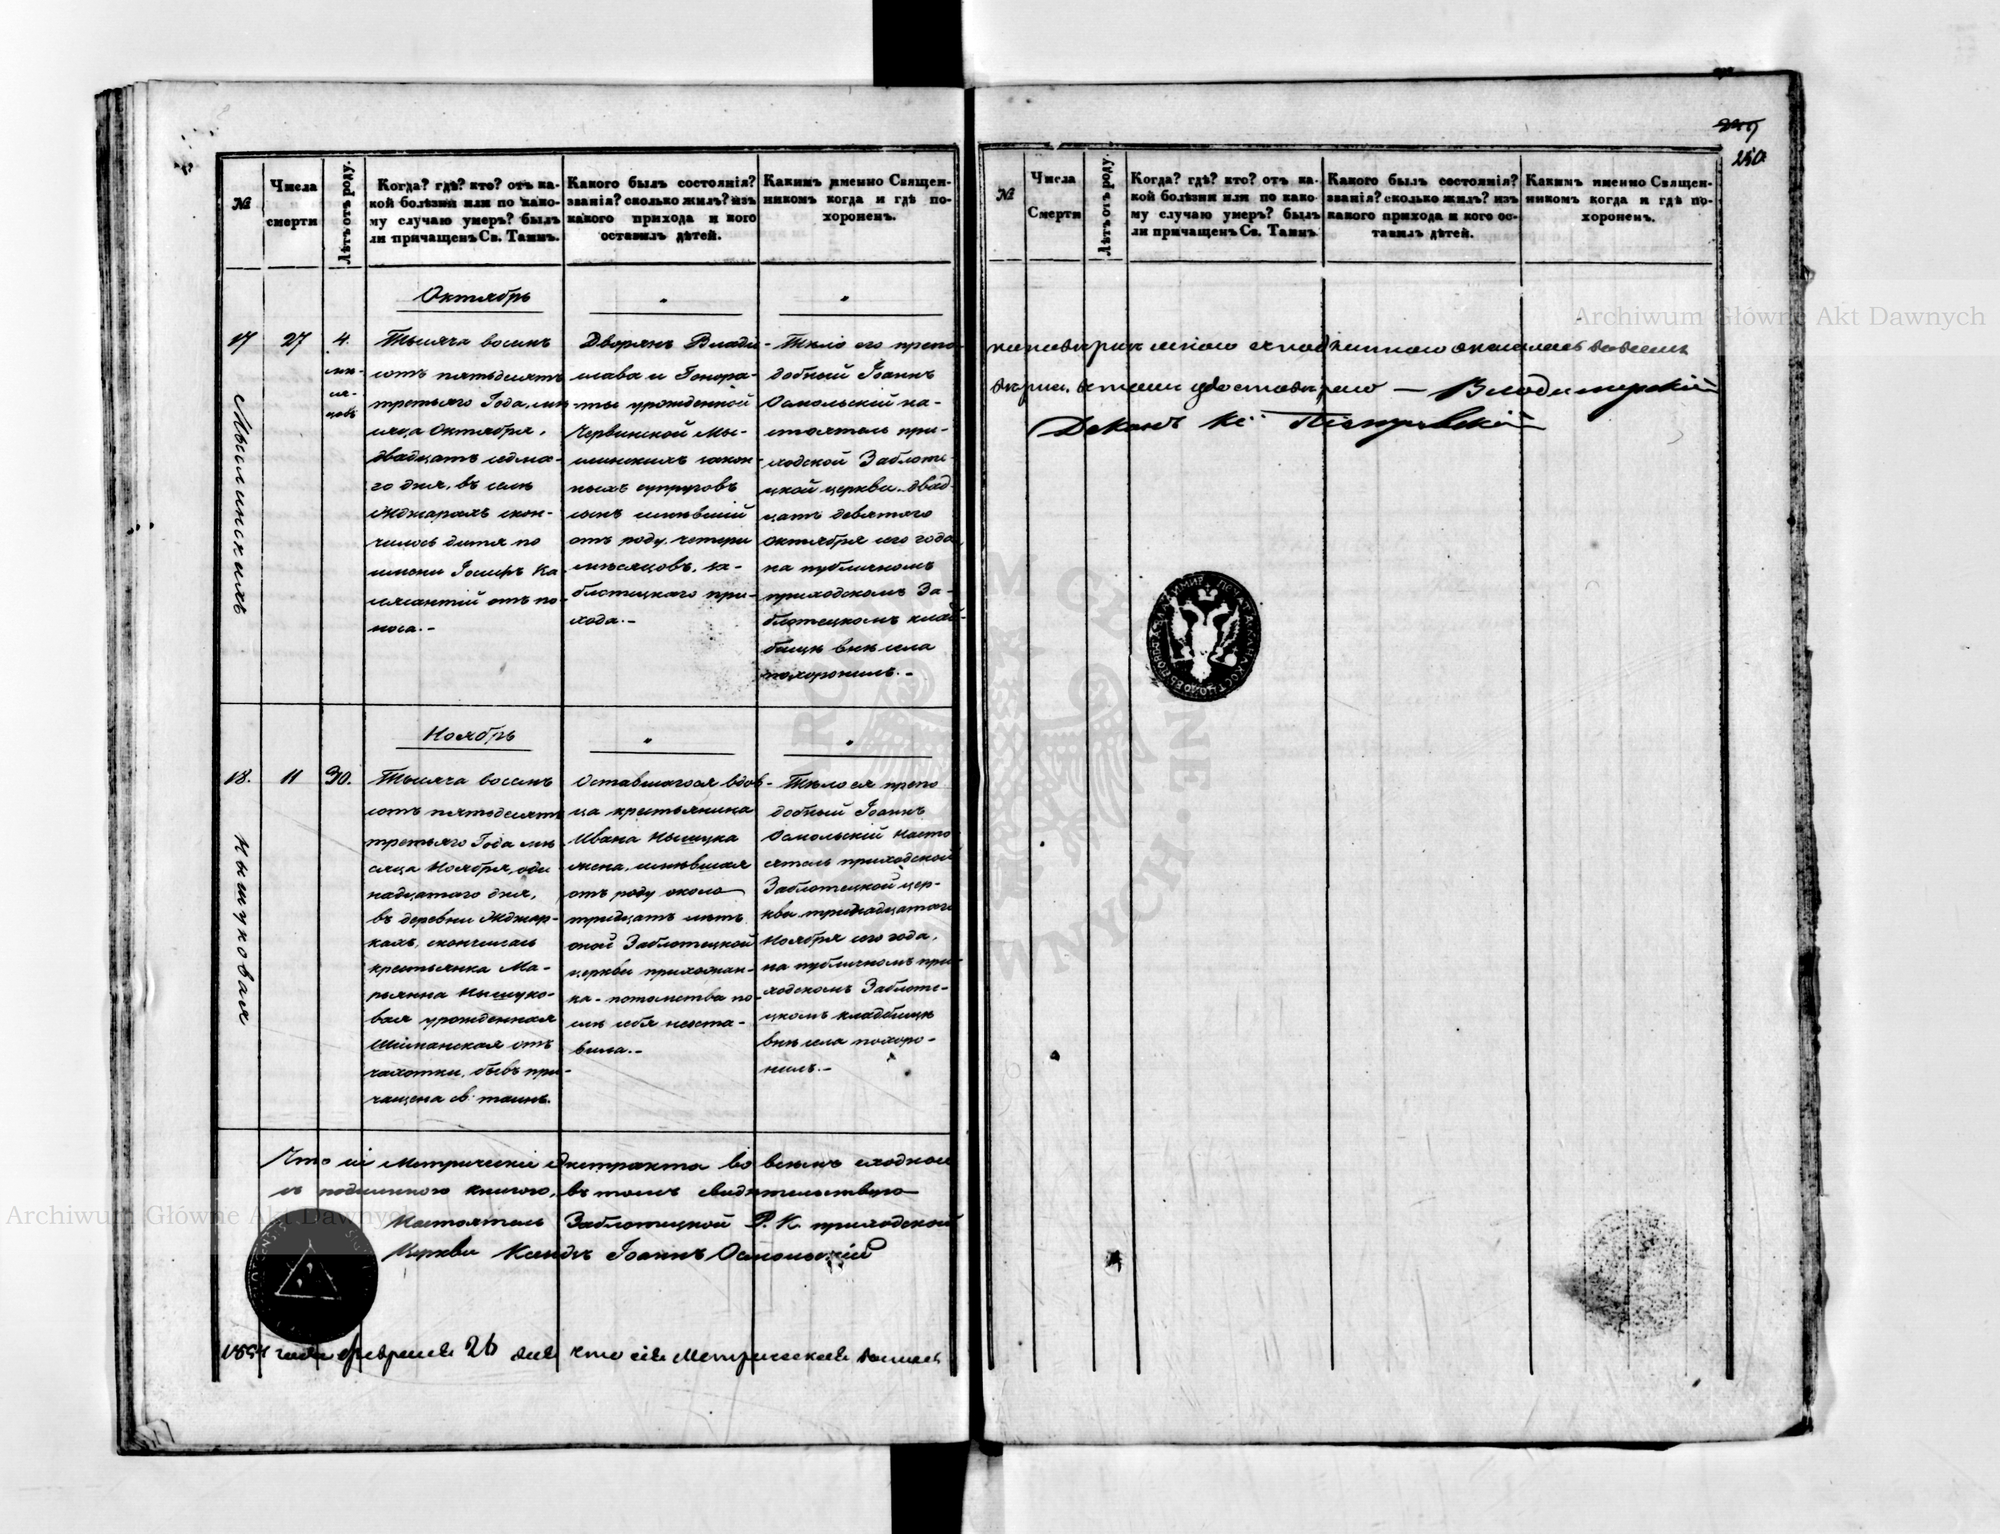 250
№
Числа
смерти
Лѣтъ отъ роду.
Когда? гдѣ? кто? отъ ка-
кой болѣзни или по како-
му случаю умеръ? былъ
ли причащенъ Св. Таинъ.
Какого былъ состоянія?
званія? сколько жилъ? изъ
какого прихода и кого
оставилъ дѣтей.
Какимъ именно Священ-
никомъ когда и гдѣ по-
хороненъ.
Октябрь
17
Мыслинскихъ
27
4.
мѣ-
ся-
цовъ
Тысяча восемь
сотъ пятьдесятъ
третьяго Года, мѣ-
сяца Октября,
двадцать седма-
го дня, въ селѣ
Жджарахъ скон-
чилось дитя по
имени Іосифъ Ка-
лясантій отъ по-
носа.-
Дворянъ Влади-
слава и Гонора-
ты урожденной
Червинской Мы-
слинскихъ закон-
ныхъ супруговъ
сынъ имѣвшій
отъ роду четери
мѣсяцовъ, за-
блотецкаго при-
хода.-
Тѣло его препо-
добный Іоаннъ
Осмольскій на-
стоятель при-
ходской Заблоте-
цкой церкви двад-
цать девятаго
Октября сего года,
на публичномъ
приходскомъ За-
блотецкомъ клад-
бищѣ внѣ села
похоронилъ.-
Ноябрь
18.
Нышуковая
11
30.
Тысяча восемь
сотъ пятьдесятъ
третьяго Года мѣ-
сяца Ноября, оди-
надцатаго дня,
въ деревни Жджар-
кахъ, скончилась
крестьянка Ма-
рьянна Нышуко-
вая урожденная
отъ
чахотки, бывъ при-
чащена св. таинъ.
Оставшагося вдов-
ца крестьянина
Ивана Нышука
жена, имѣвшая
отъ роду около
тридцать лѣтъ
оной Заблотецкой
церкви прихожан-
ка- потомства по-
слѣ себя неоста-
вила.-
Тѣло ея препо-
добный Іоаннъ
Осмольскій Насто-
ятель приходской
Заблотецкой цер-
кви тринадцатаго
Ноября сего года,
на публичномъ при-
ходскомъ Заблоте-
цкомъ кладбищѣ
внѣ села похоро-
нилъ.-
Что сіи Метрическіе Экстракта во всемъ сходное
съ подлинною книгою, въ томъ свидѣтельствую
Настоятель Заблотецкой Р. К. приходской
Церкви Ксендзъ Іоаннъ Осмольскій
1854 года февраля 26 дня что сія Метрическая
№
Числа
Смерти
Лѣтъ отъ роду.
Когда? гдѣ? кто? отъ ка-
кой болѣзни или по како-
му случаю умеръ? былъ
ли причащенъ Св. Таинъ
Какого былъ состоянія?
званія? сколько жилъ? изъ
какого прихода и кого ос-
тавилъ дѣтей.
Какимъ именно Священ-
никомъ когда и гдѣ по-
хороненъ.
Владимирскій
Деканъ
Archiwum Główne Akt Dawnych
Archiwum Główne Akt Dawnych